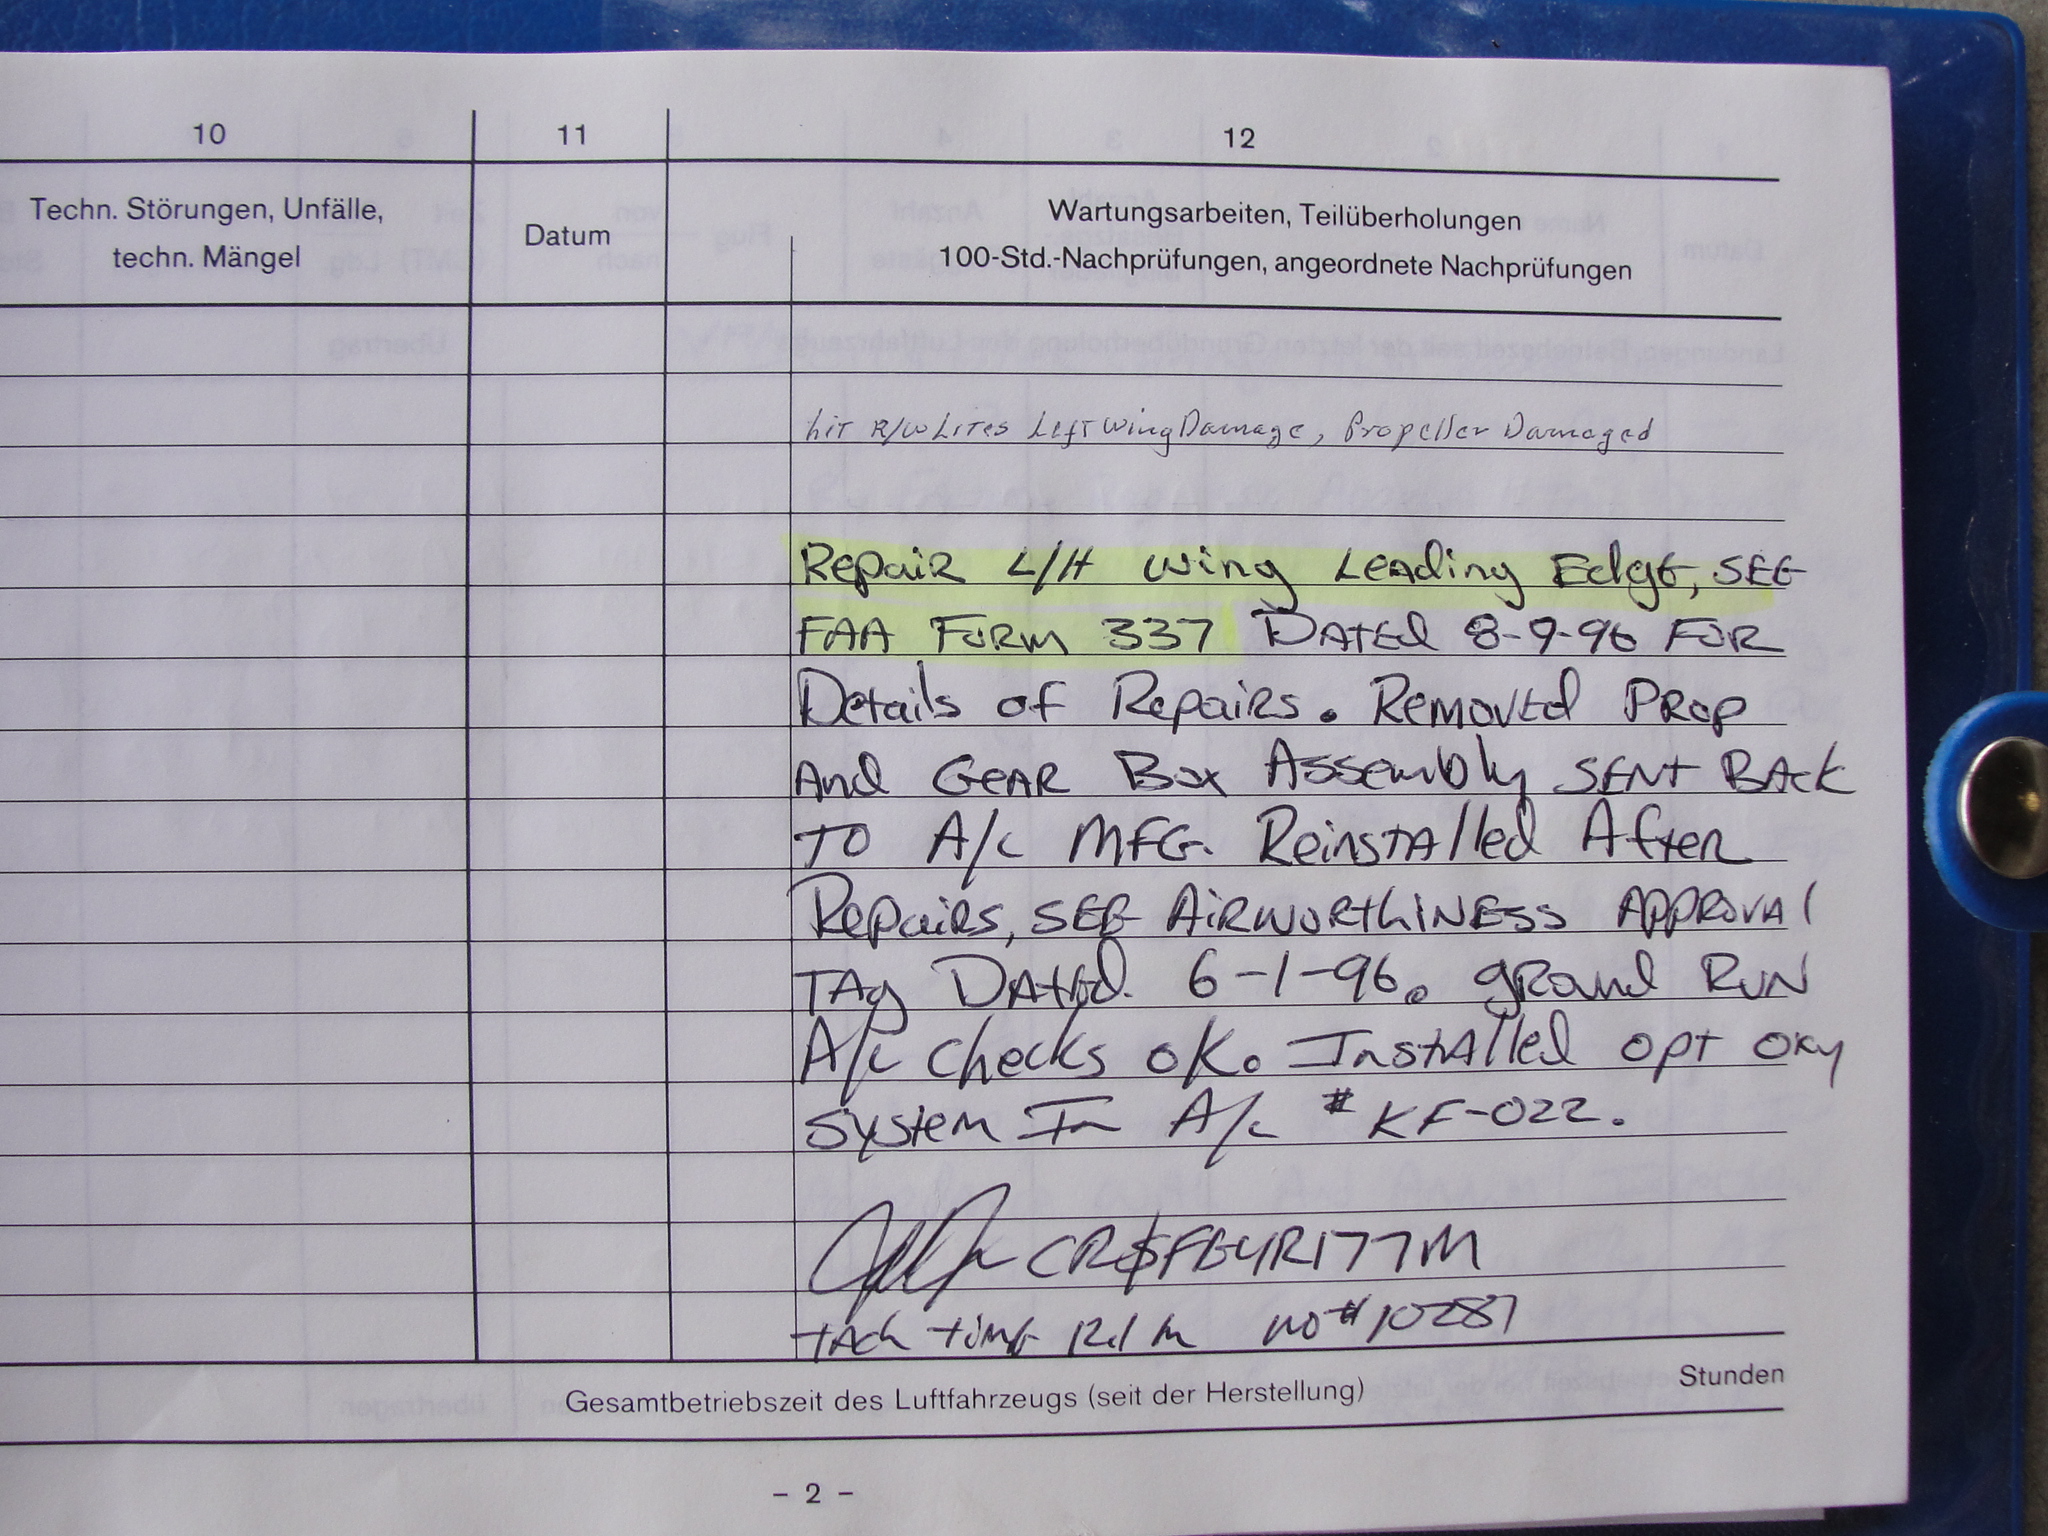 10 11 12
Techn. Störungen, Unfälle,
techn. Mängel
Datum
Wartungsarbeiten, Teilüberholungen
100-Std.-Nachprüfungen, angeordnete Nachprüfungen
hit R/W Lites Left Wing Damage, Propeller Damaged
Repair L/H Wing Leading Edge, SEE
FAA Form 337 Dated 8-9-96 For
Details of Repairs. Removed Prop
And Gear Box Assembly SENT BACK
TO A/C MFG. Reinstalled After
Repairs, SEE AIRWORTHINESS APPROVAL
TAG Dated 6-1-96. ground RUN
A/C checks OK. Installed opt oxy
System In A/C # KF-022.
Tach time
Stunden
Gesamtbetriebszeit des Luftfahrzeugs (seit der Herstellung)
- 2 -